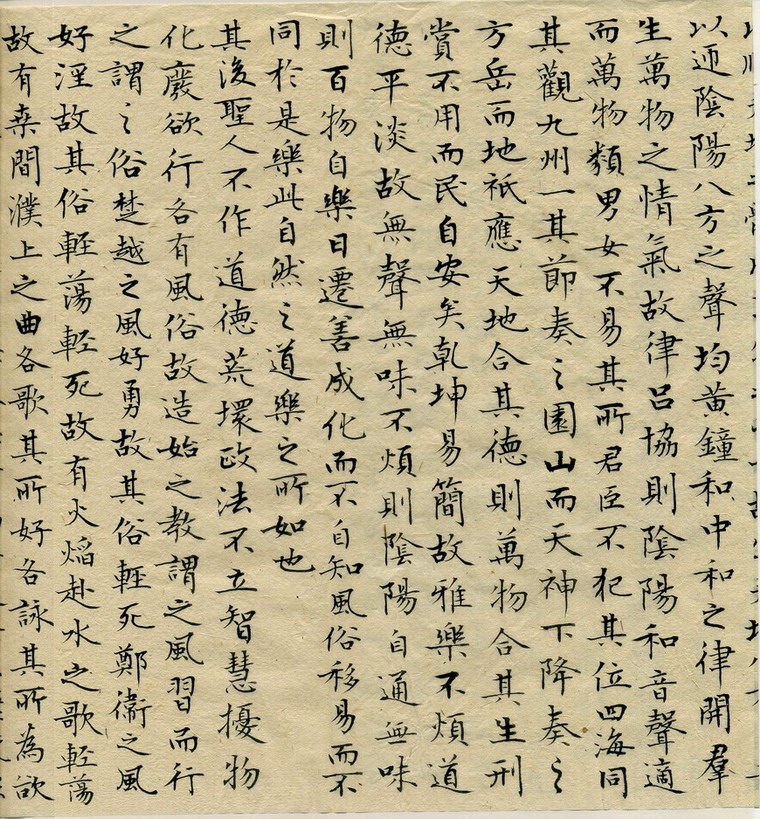 以迊陰陽八方之聲均黃鐘和中和之律開羣
生萬物之情氣故律呂協則陰陽和音聲適
而萬物類男女不易其所君臣不犯其位四海同
其觀九州一其節奏之園山而天神下降奏之
方岳而地祇應天地合其德則萬物合其生刑
賞不用而民自安矣乾坤易簡故雅樂不煩道
德平淡故無聲無味不煩則陰陽自通無味
則百物自樂日遷善成化而不自知風俗移易而不
同於是樂此自然之道樂之所如也
其後聖人不作道德荒壞政法不立智慧擾物
化廢欲行各有風俗故造始之教謂之風習而行
之謂之俗楚越之風好勇故其俗輕死鄭衛之風
好淫故其俗輕蕩輕死故有火焰赴水之歌輕蕩
故有桑間濮上之曲各歌其所好各詠其所為欲